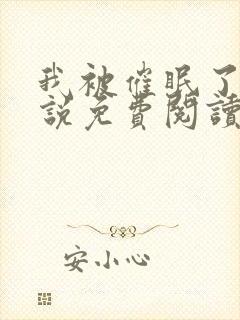 我被催眠了
說免費閱讀
安小心